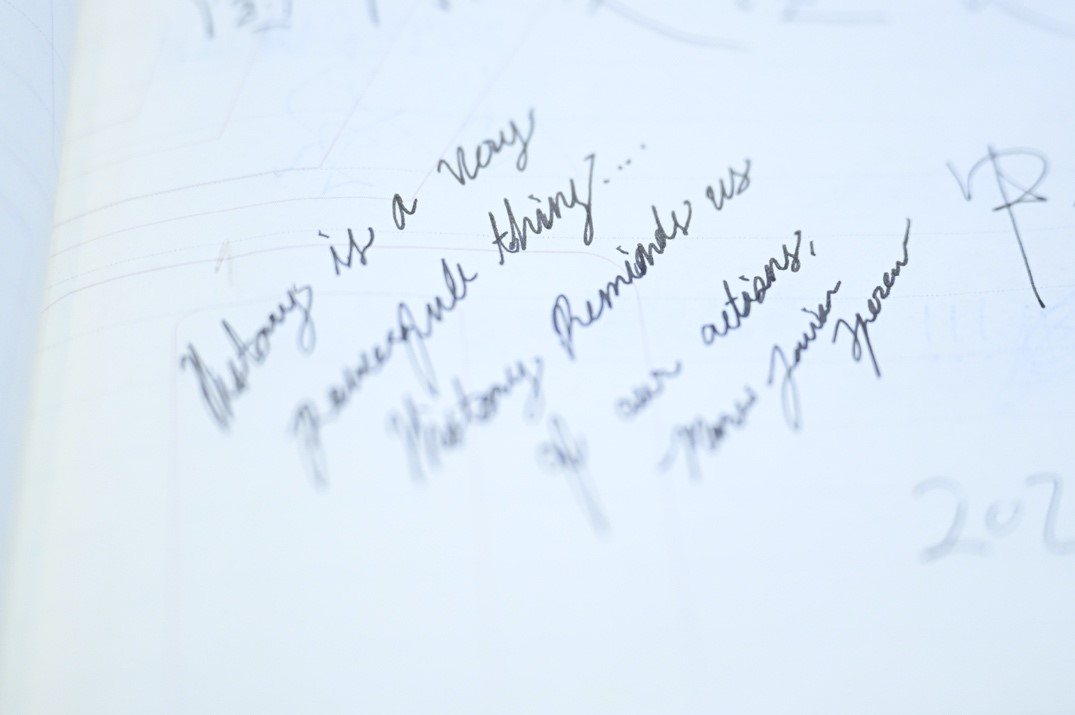 History is a very
powerful thing...
History Reminds us
of our actions.
202